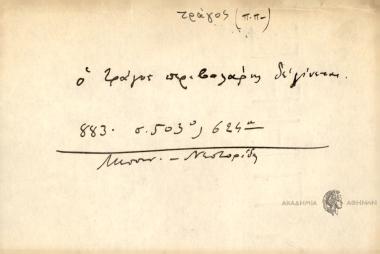 τράγος (π.π-)
ὁ τράγος περιβολάρης δὲ γίνεται.
883. σ. 503 624
Νεστορίδη
ΑΚΑΔΗΜΙΑ ΑΘΗΝΩΝ